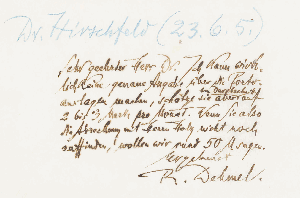 Dr. Hirschfeld (23.6.5.)
Sehr geehrter Herr Dr. Ich kann wirk-
lich keine genaue Angabe über die Porto-
auslagen machen, schätze sie aber auf
2 bis 3 Mark pro Monat. Wenn Sie also
die Abrechnung mit Herrn Holz nicht noch
, wollen wir rund 50 M sagen.
Ergebenst
R. Dehmel.